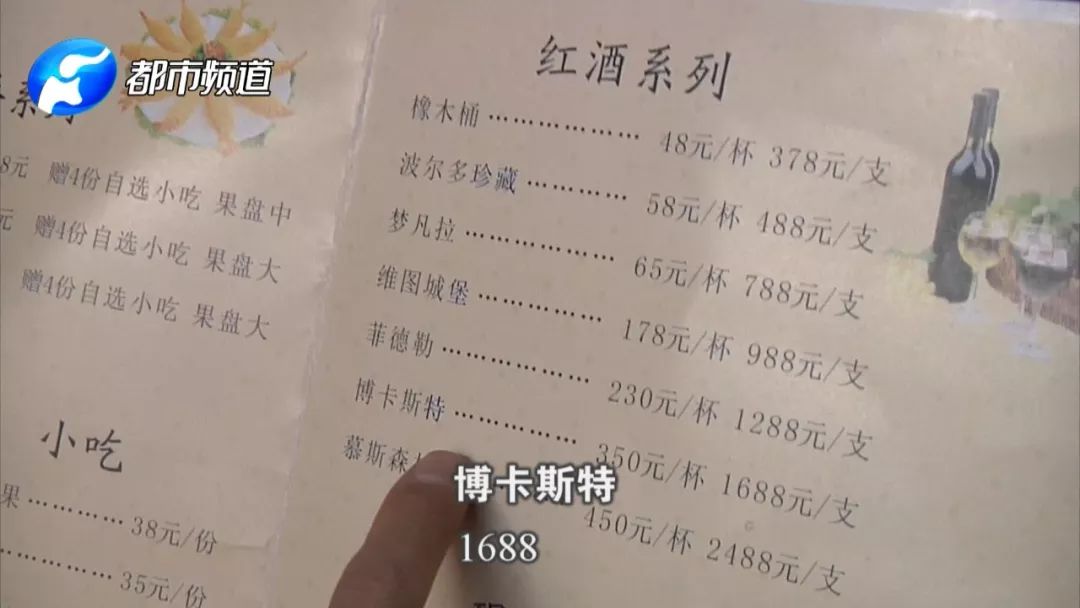 都市频道
系列
8元 赠4份自选小吃 果盘中
元 赠4份自选小吃 果盘大
赠4份自选小吃 果盘大
小吃
果………………38元/份
………………35元/份
红酒系列
橡木桶………………48元/杯 378元/支
波尔多珍藏………………58元/杯 488元/支
梦凡拉………………65元/杯 788元/支
维图城堡………………178元/杯 988元/支
菲德勒………………230元/杯 1288元/支
博卡斯特………………350元/杯 1688元/支
慕斯森 450元/杯 2488元/支
博卡斯特
1688